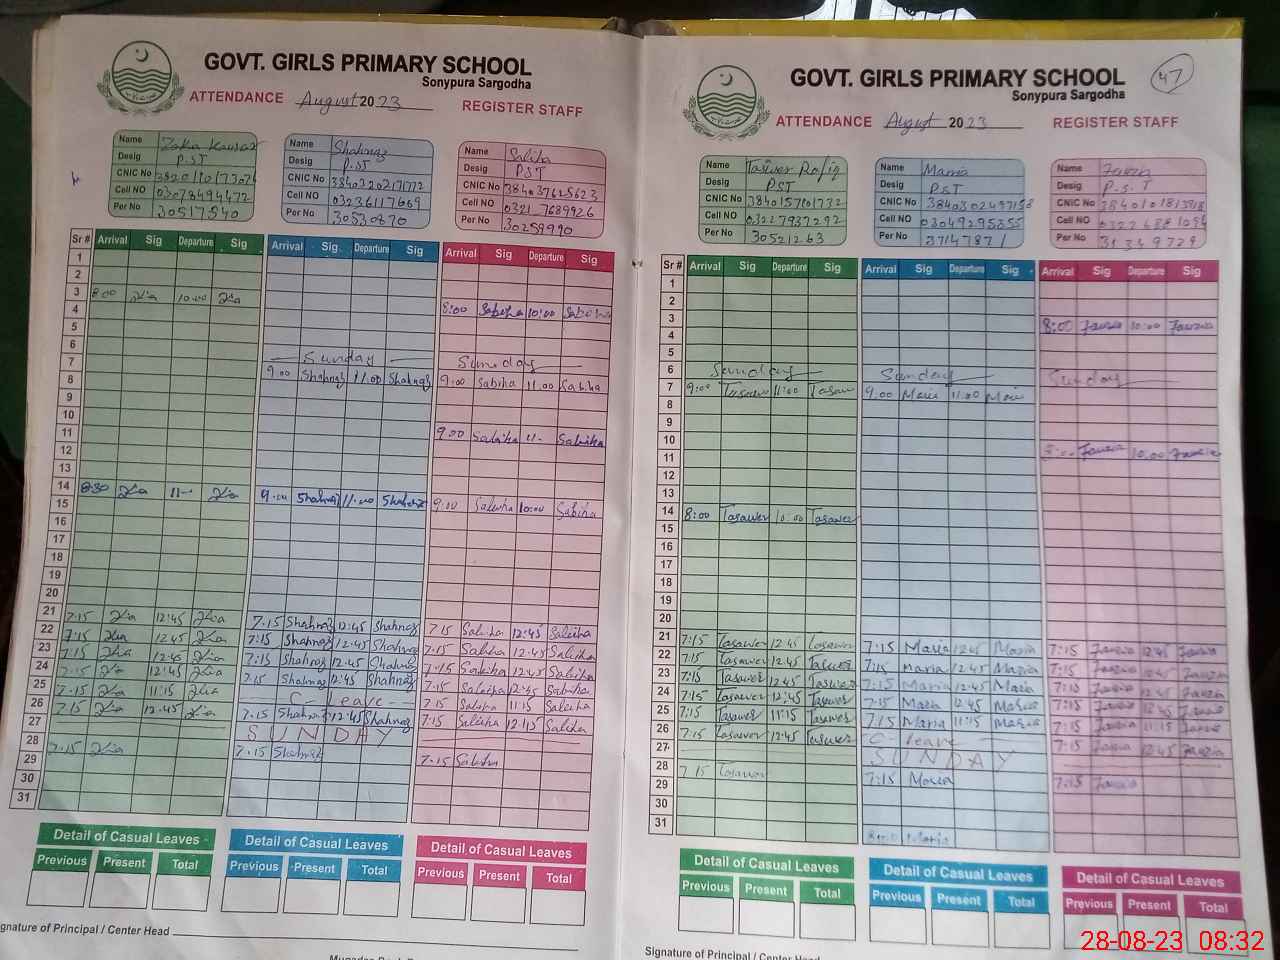 GOVT. GIRLS PRIMARY SCHOOL
Sonypura Sargodha
ATTENDANCE August 2023 REGISTER STAFF
Name Zakia Kausar
Desig P.ST
CNIC No
Cell NO 03078494472
Per No 30517540
Name Shahnaz
Desig P.ST
CNIC No 3840220217172
Cell NO 03236117669
Per No 30530870
Name Sabiha
Desig PST
CNIC No 384037625623
Cell NO 0321 7689926
Per No 30259990
Sr # Arrival Sig Departure Sig Arrival Sig Departure Sig Arrival Sig Departure Sig
1
2
3 8:00 Zkia 10:00 Zkia
4 8:00 Sabiha 10:00 Sabiha
5
6
7 Sunday Sunday
8 9.00 Shahnaz 11.00 Shahnaz 9:00 Sabiha 11.00 Sabiha
9
10
11 9:00 Sabiha 11- Sabiha
12
13
14 830 Zkia 11- Zkia 9.00 Shahnaz 11.00 Shahnaz
15 9:00 Sabiha 10:00 Sabiha
16
17
18
19
20
21 7.15 Zkia 12:45 Zkia 7.15 Shahnaz 12:45 Shahnaz 7:15 Sabiha 12:45 Sabiha
22 7:15 Zkia 12.45 Zkia 7:15 Shahnaz 12.45 Shahnaz 7.15 Sabiha 12.45 Sabiha
23 7.15 Zkia 12:45 Zkia 7:15 Shahnaz 12:45 Shahnaz 7:15 Sabiha 12:45 Sabiha
24 7:15 Zkia 12:45 Zkia 7.15 Shahnaz 12:45 Shahnaz 7:15 Sabiha 12:45 Sabiha
25 7.15 Zkia 11:15 Zkia C- Leave 7:15 Sabiha 11:15 Sabiha
26 7.15 Zkia 12.45 Zkia 7.15 Shahnaz 12.45 Shahnaz 7:15 Sabiha 12:45 Sabiha
27 SUNDAY
28 7.15 Zkia 7.15 Shahnaz 7.15 Sabiha
29
30
31
Detail of Casual Leaves Detail of Casual Leaves Detail of Casual Leaves
Previous Present Total Previous Present Total Previous Present Total
gnature of Principal / Center Head
GOVT. GIRLS PRIMARY SCHOOL 47
Sonypura Sargodha
ATTENDANCE August 2023 REGISTER STAFF
Name Taswer Rafiq
Desig PST
CNIC No 3840157601732
Cell NO 03227937292
Per No 30521263
Name Maria
Desig P.ST
CNIC No 3840302497158
Cell NO 03049295355
Per No 3714787 1
Name
Desig P.S.T
CNIC No 3840101813918
Cell NO
Per No 31349729
Sr # Arrival Sig Departure Sig Arrival Sig Departure Sig Arrival Sig Departure Sig
1
2
3 8:00 Fauzia 10:00 Fauzia
4
5
6 Sunday Sunday Sunday
7 9:00 Tasawer 11:00 Tasawer 9.00 Maria 11.00 Maria
8
9
10 Fauzia 10.00 Fauzia
11
12
13
14 8:00 Tasawer 10:00 Tasawer
15
16
17
18
19
20
21 7:15 Tasawer 12:45 Tasawer 7:15 Maria 12:45 Maria 7:15 Fauzia 12:45 Fauzia
22 7:15 Tasawer 12:45 Tasawer 7:15 Maria 12:45 Maria 7:15 Fauzia 12:45 Fauzia
23 7:15 Tasawer 12:45 Tasawer 7:15 Maria 12:45 Maria 7:15 Fauzia 12:45 Fauzia
24 7:15 Tasawer 12:45 Tasawer 7.15 Maria 12:45 Maria 7:15 Fauzia 12:45 Fauzia
25 7:15 Tasawer 11:15 Tasawer 7:15 Maria 11:15 Maria 7:15 Fauzia 11:15 Fauzia
26 7:15 Tasawer 12:45 Tasawer C- leave 7:15 Fauzia 12:45 Fauzia
27 SUNDAY
28 7 15 Tasawer 7:15 Maria 7:15 Fauzia
29
30
31 Maria
Detail of Casual Leaves Detail of Casual Leaves Detail of Casual Leaves
Previous Present Total Previous Present Total Previous Present Total
Signature of Principal / Center Head
28-08-23 08:32